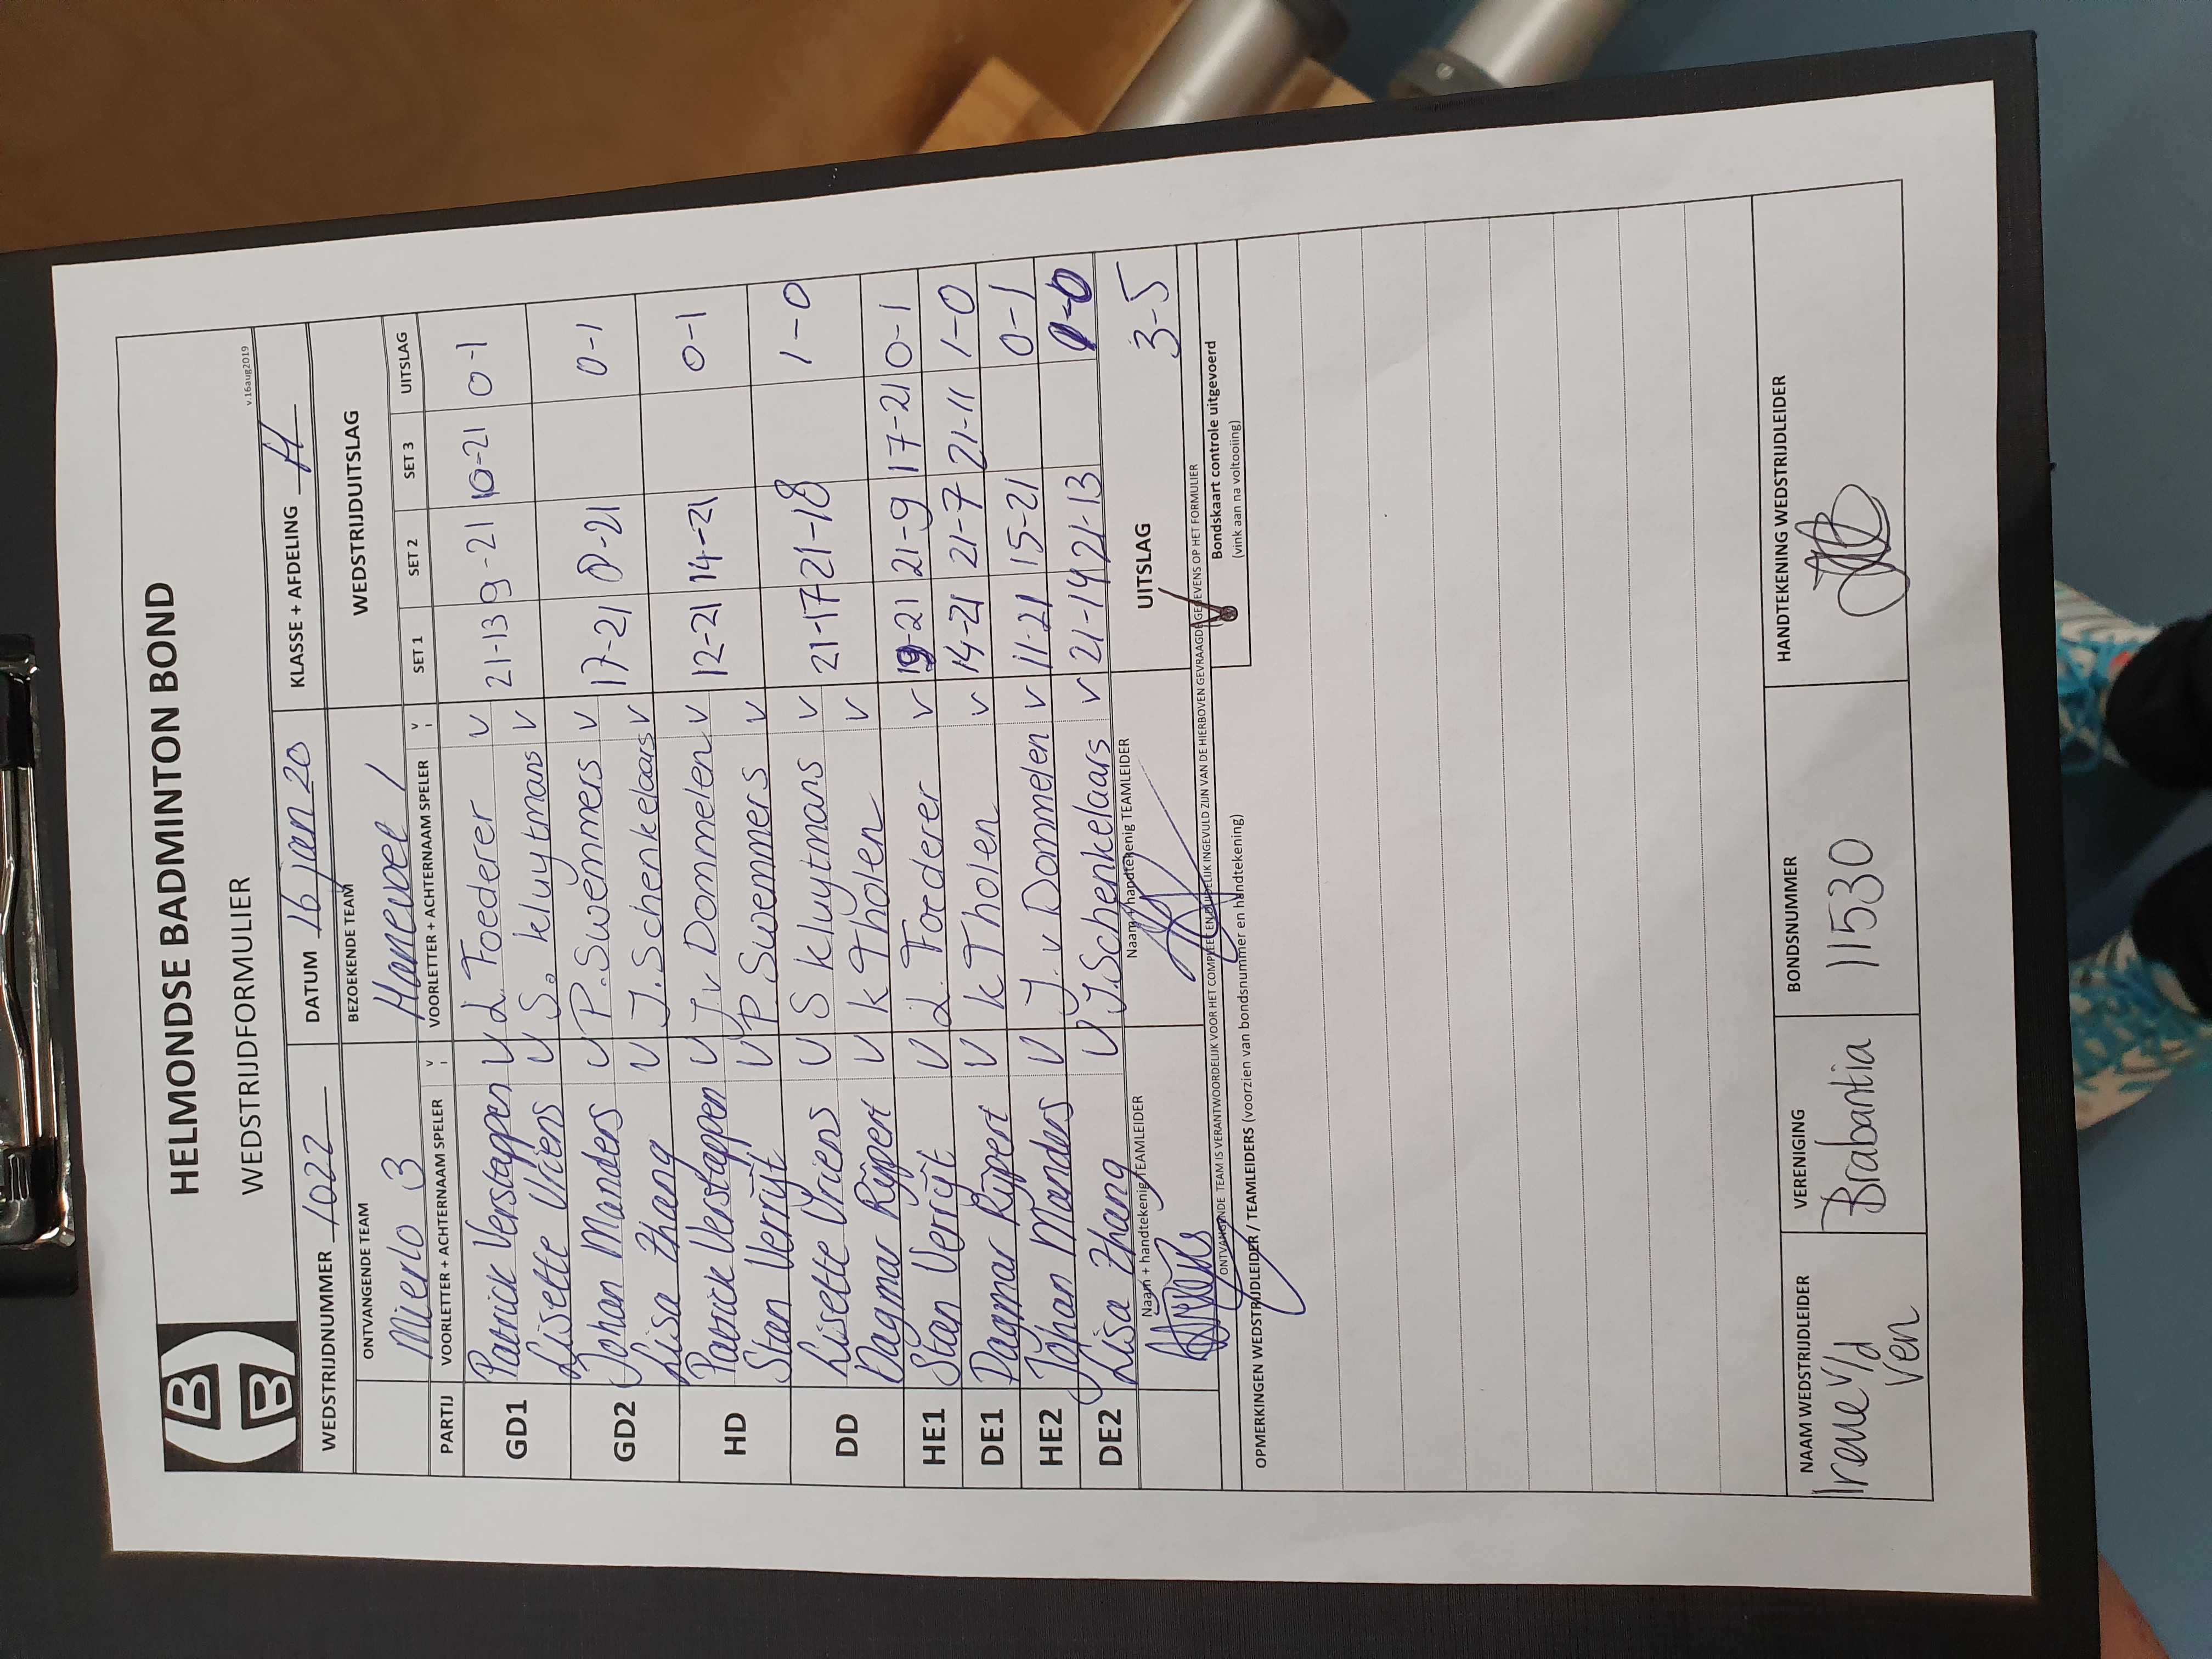 HELMONDSE BADMINTON BOND
WEDSTRIJDFORMULIER
v.16aug2019
WEDSTRIJDNUMMER 1022 DATUM 16 jan 20 KLASSE + AFDELING H
ONTVANGENDE TEAM BEZOEKENDE TEAM WEDSTRIJDUITSLAG
Mierlo 3 Hanevoet 1
PARTIJ VOORLETTER + ACHTERNAAM SPELER V VOORLETTER + ACHTERNAAM SPELER V SET 1 SET 2 SET 3 UITSLAG
GD1 Patrick Verstappen V L. Foederer V 21-13 9-21 10-21 0-1
Lisette Vriens V S. Kluytmans V
GD2 Johan Manders V P. Swemmers V 17-21 8-21 0-1
Lisa Zhang V J. Schenkelaars V
HD Patrick Verstappen V J. v Dommelen V 12-21 14-21 0-1
Stan Verrijt V P. Swemmers V
DD Lisette Vriens V S Kluytmans V 21-17 21-18 1-0
Dagmar Rijpert V K Tholen V
HE1 Stan Verrijt V L. Foederer V 19-21 21-9 17-21 0-1
DE1 Dagmar Rijpert V K Tholen V 14-21 21-7 21-11 1-0
HE2 Johan Manders V J. v Dommelen V 11-21 15-21 0-1
DE2 Lisa Zhang V J. Schenkelaars V 21-14 21-13 1-0
Naam + handtekenig TEAMLEIDER Naam + handtekenig TEAMLEIDER UITSLAG 3-5
ONTVANGENDE TEAM IS VERANTWOORDELIJK VOOR HET COMPLEET EN DUIDELIJK INGEVULD ZIJN VAN DE HIERBOVEN GEVRAAGDE GEGEVENS OP HET FORMULIER
OPMERKINGEN WEDSTRIJDLEIDER / TEAMLEIDERS (voorzien van bondsnummer en handtekening)
Bondskaart controle uitgevoerd
(vink aan na voltooiing)
NAAM WEDSTRIJDLEIDER VERENIGING BONDSNUMMER HANDTEKENING WEDSTRIJDLEIDER
Irene v/d Brabantia 11530
Ven